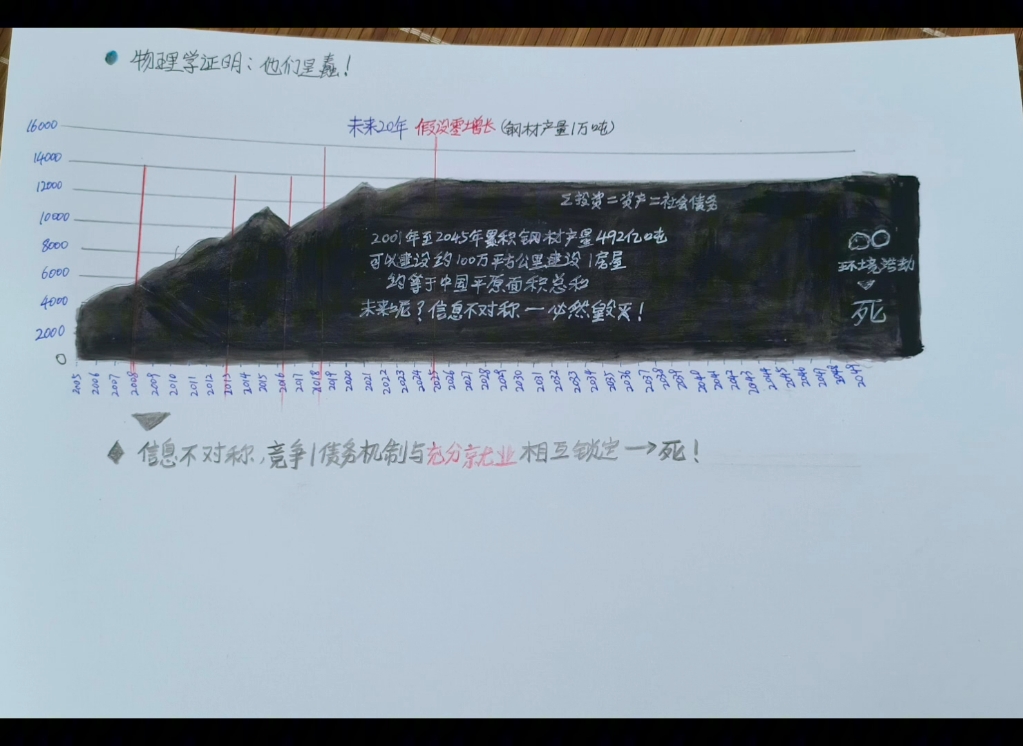 物理学证明：他们是蠢！
未来20年 假设零增长（钢材产量/万吨）
16000
14000
12000
10000
8000
6000
4000
2000
0
Σ投资=资产=社会债务
2001年至2045年累积钢材产量492亿吨
可以建设约100万平方公里建设/房屋
约等于中国平原面积总和
未来呢？信息不对称—必然毁灭！
∞
环境活动
死
2005 2006 2007 2008 2009 2010 2011 2012 2013 2014 2015 2016 2017 2018 2019 2020 2021 2022 2023 2024 2025 2026 2027 2028 2029 2030 2031 2032 2033 2034 2035 2036 2037 2038 2039 2040 2041 2042 2043 2044 2045 2046 2047 2048 2049
信息不对称，竞争/债务机制与充分就业相互锁定→死！